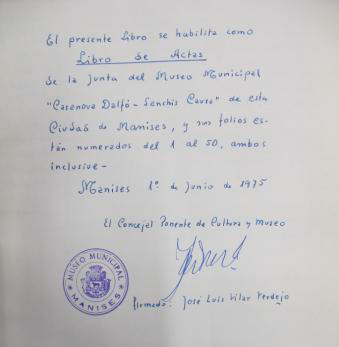 El presente Libro se habilita como
Libro de Actas
de la Junta del Museo Municipal
"Casanova Dalfó - Senchis Causa" de esta
Ciudad de Manises, y sus folios es-
tán numerados del 1 al 50, ambos
inclusive-
Manises 1º de Junio de 1975
El Concejal Ponente de Cultura y Museo
MUSEO MUNICIPAL
MANISES
Firmado: José Luis Vilar Verdejo